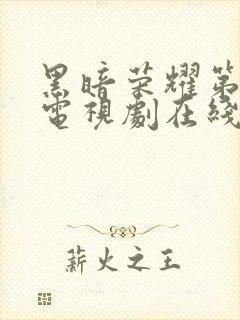 黑暗荣耀第
電視劇在綫
薪火之王